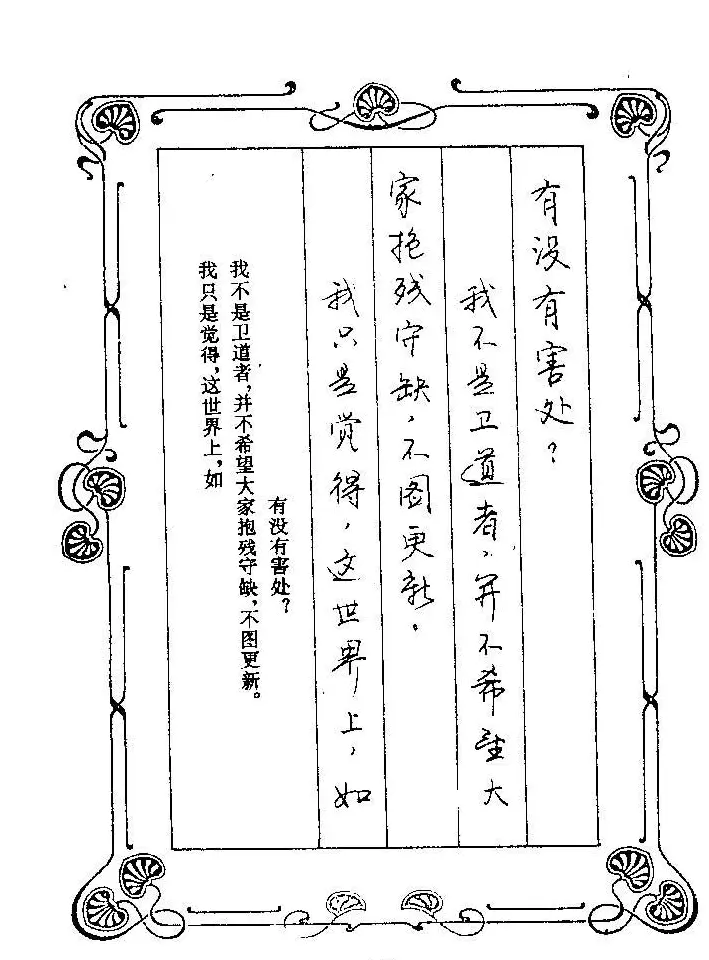 有没有害处？
我不是卫道者，并不希望大
家抱残守缺，不图更新。
我只是觉得，这世界上，如
有没有害处？
我不是卫道者，并不希望大家抱残守缺，不图更新。
我只是觉得，这世界上，如